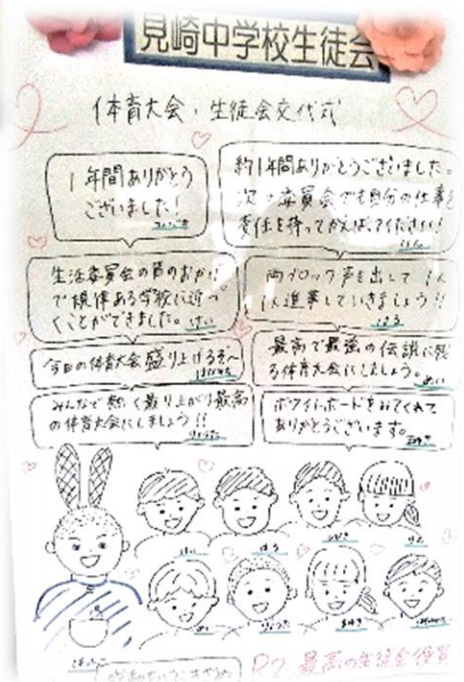 見崎中学校生徒会
体育大会・生徒会交代式
1年間ありがとう
ございました!
約1年間ありがとうございました。
次の委員会でも自分の仕事を
責任を持ってがんばってください!
生活委員会の声のおかげ
で規律ある学校に近づ
くことができました。けい
両ブロック声を出して
に進華していきましょう!!
はる
今日の体育大会盛り上げるぞ〜
最高で最強の伝説に残
る体育大会にしましょう。
みんなで熱く盛り上がり最高
の体育大会にしましょう!!
りょうた
ホワイトボードをみてくれて
ありがとうございます。
はる
りょうた
R2 最高の生徒会役員